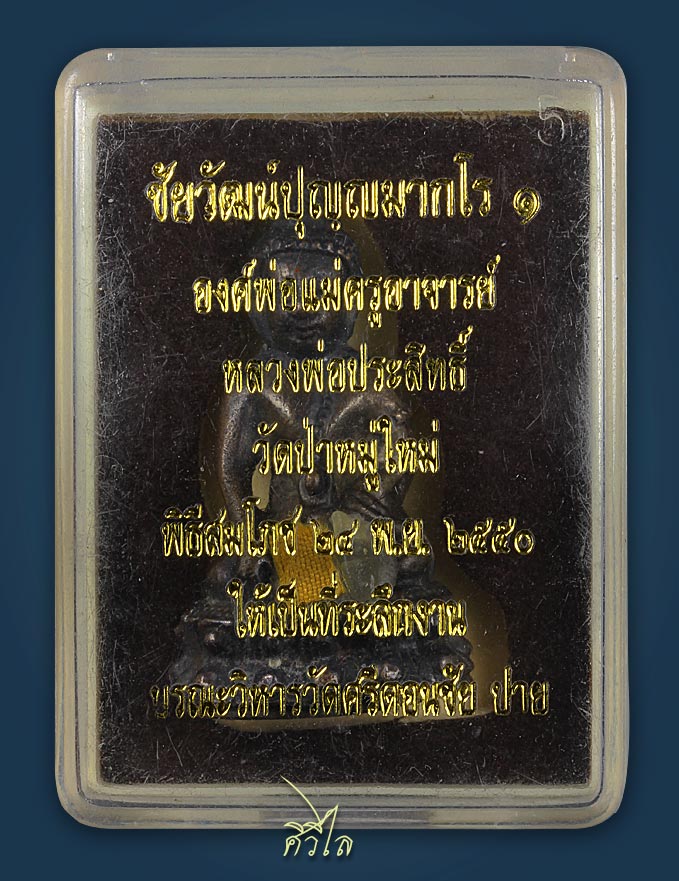 5
ชัยวัฒน์ปุญฺญมากโร ๑
องค์พ่อแม่ครูอาจารย์
หลวงพ่อประสิทธิ์
วัดป่าหมู่ใหม่
พิธีสมโภช ๒๔ พ.ย. ๒๕๕๐
ให้เป็นที่ระลึกงาน
บูรณะวิหารวัดศรีดอนชัย ปาย
ศิวิไล